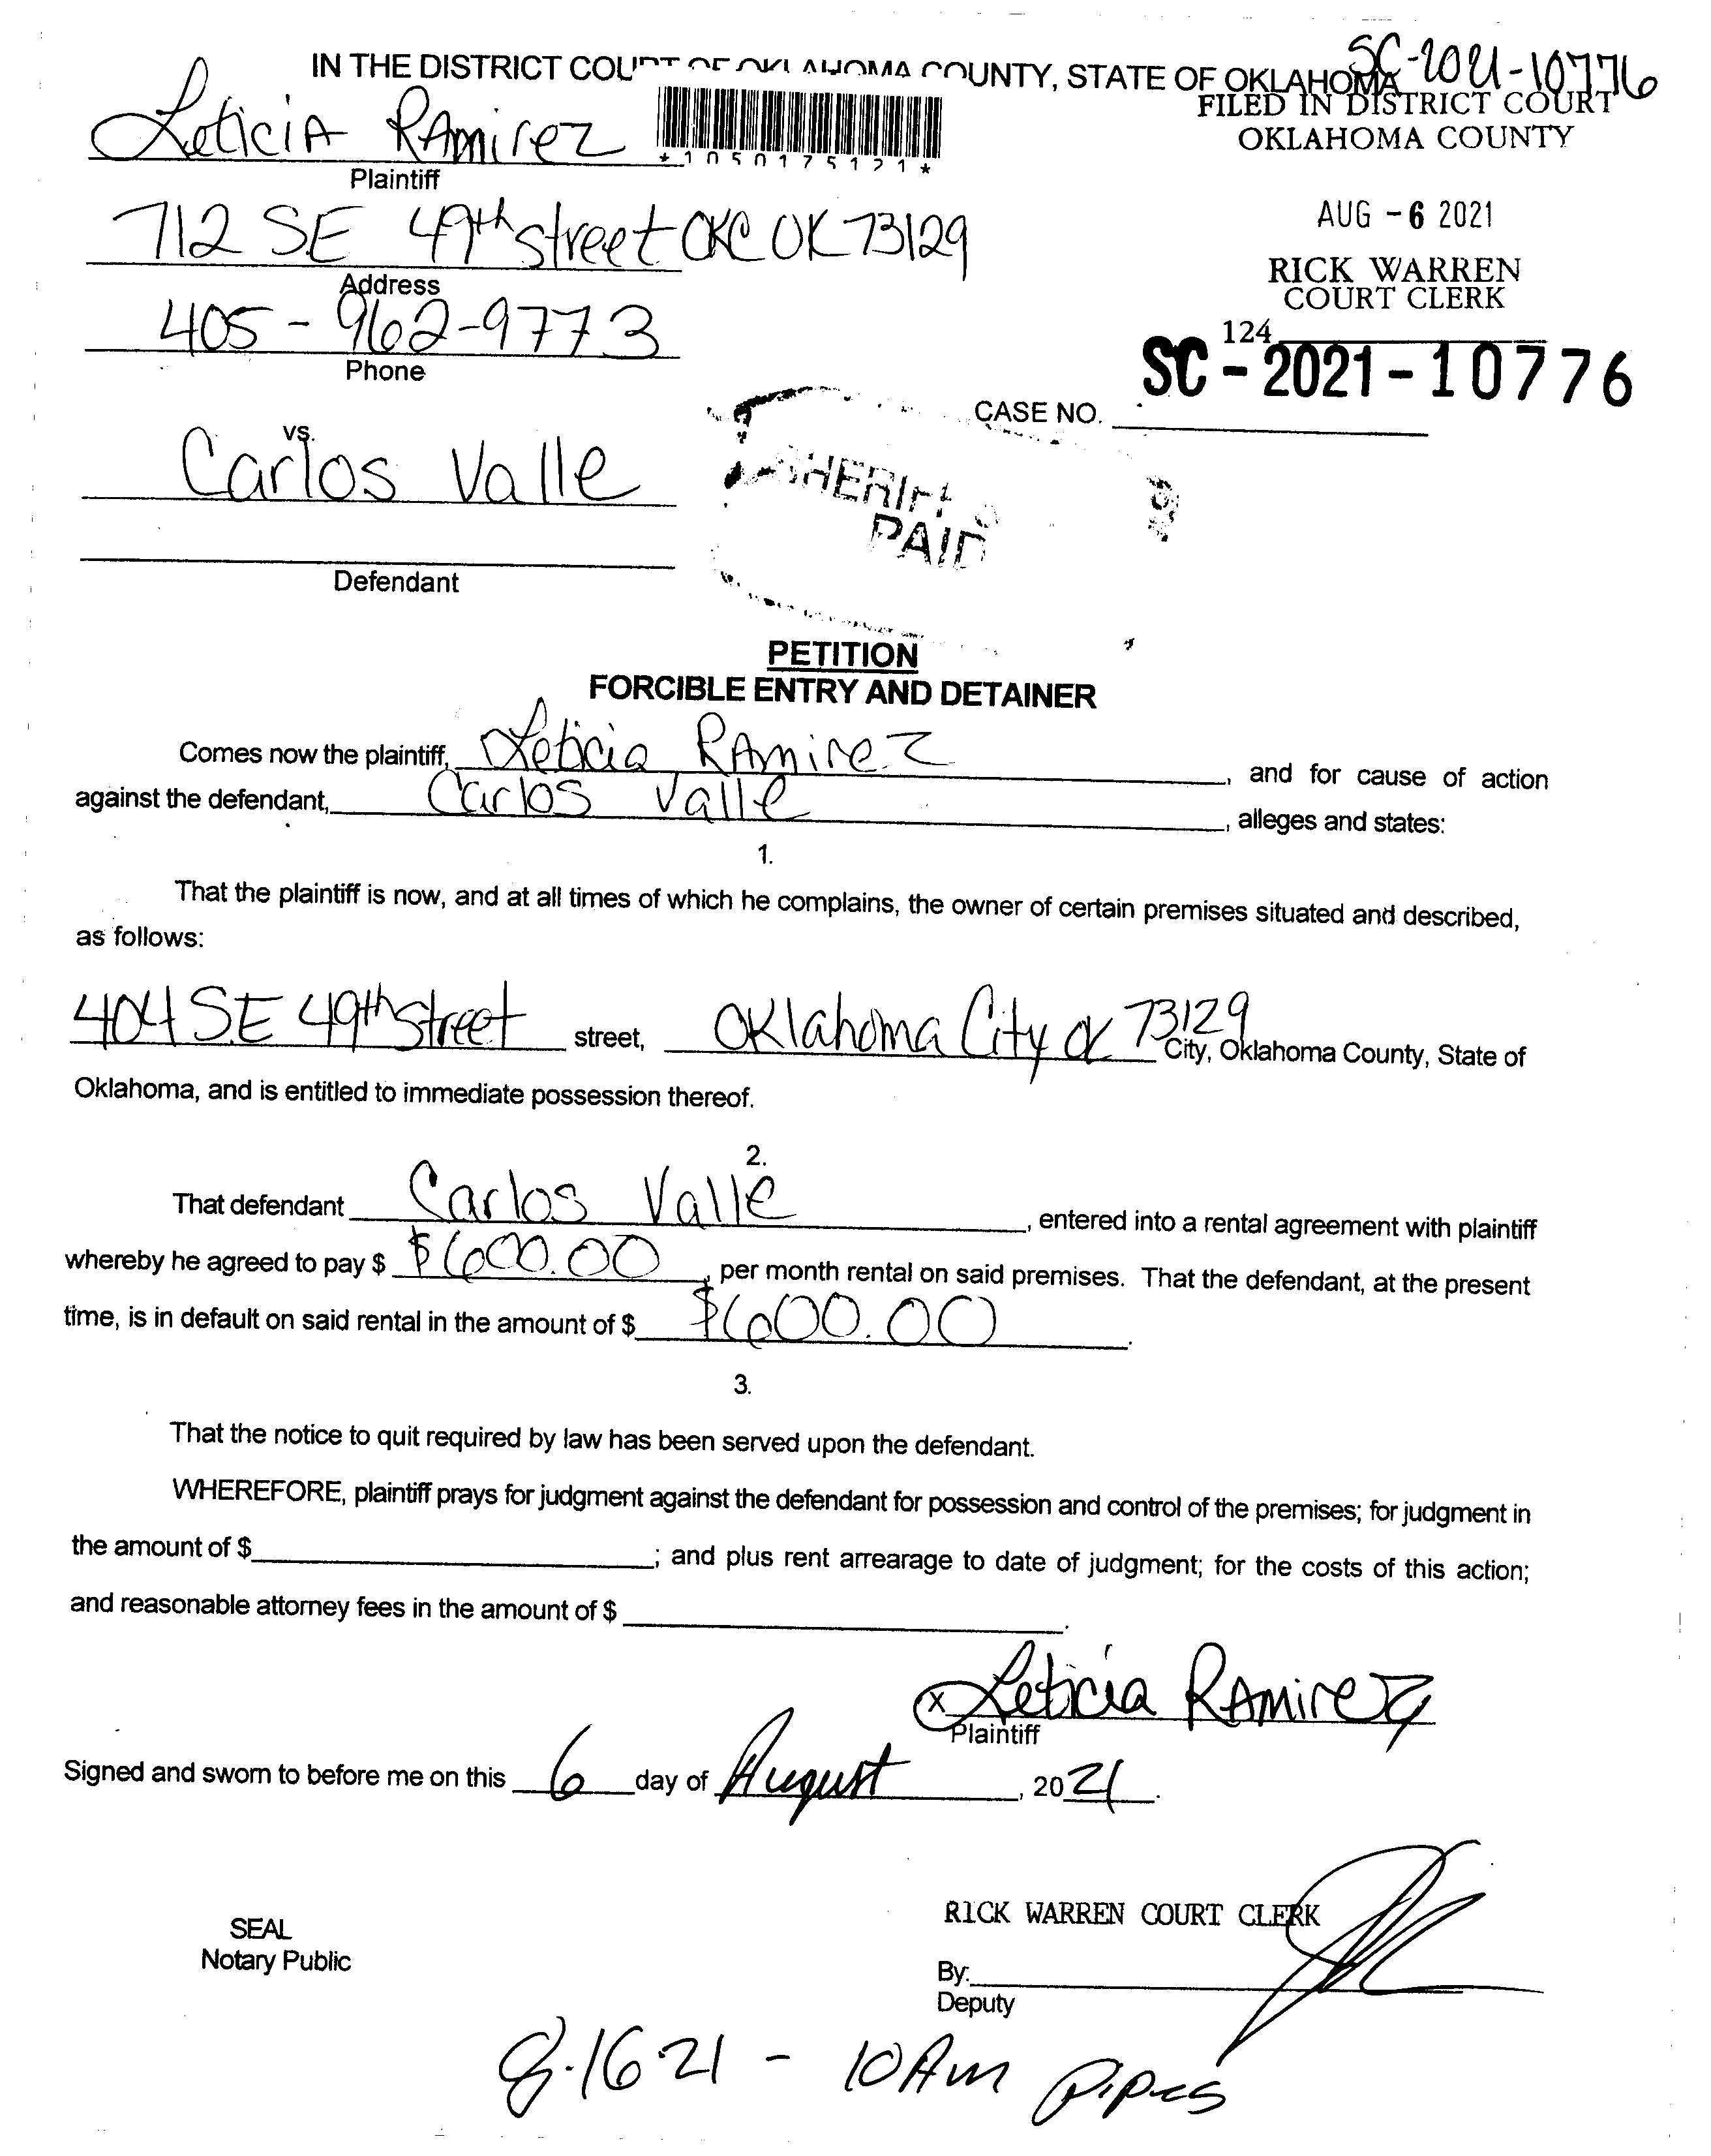 SC-2021-10776
IN THE DISTRICT COURT OF OKLAHOMA COUNTY, STATE OF OKLAHOMA
FILED IN DISTRICT COURT
OKLAHOMA COUNTY
Leticia Ramirez
*1050175121*
Plaintiff
AUG -6 2021
712 S.E 49th street OKC OK 73129
Address
RICK WARREN
COURT CLERK
405-962-9773
Phone
124
SC-2021-10776
CASE NO.
vs.
Carlos Valle
SHERIFF
PAID
Defendant
PETITION
FORCIBLE ENTRY AND DETAINER
Comes now the plaintiff, Leticia Ramirez, and for cause of action
against the defendant, Carlos Valle, alleges and states:
1.
That the plaintiff is now, and at all times of which he complains, the owner of certain premises situated and described,
as follows:
404 S.E 49th Street street, Oklahoma City OK 73129 City, Oklahoma County, State of
Oklahoma, and is entitled to immediate possession thereof.
2.
That defendant Carlos Valle, entered into a rental agreement with plaintiff
whereby he agreed to pay $ $600.00, per month rental on said premises. That the defendant, at the present
time, is in default on said rental in the amount of $ $600.00.
3.
That the notice to quit required by law has been served upon the defendant.
WHEREFORE, plaintiff prays for judgment against the defendant for possession and control of the premises; for judgment in
the amount of $ ; and plus rent arrearage to date of judgment; for the costs of this action;
and reasonable attorney fees in the amount of $ .
X Leticia Ramirez
Plaintiff
Signed and sworn to before me on this 6 day of August, 2021.
RICK WARREN COURT CLERK
SEAL
Notary Public
By:
Deputy
8-16-21 - 10 Am Pipes